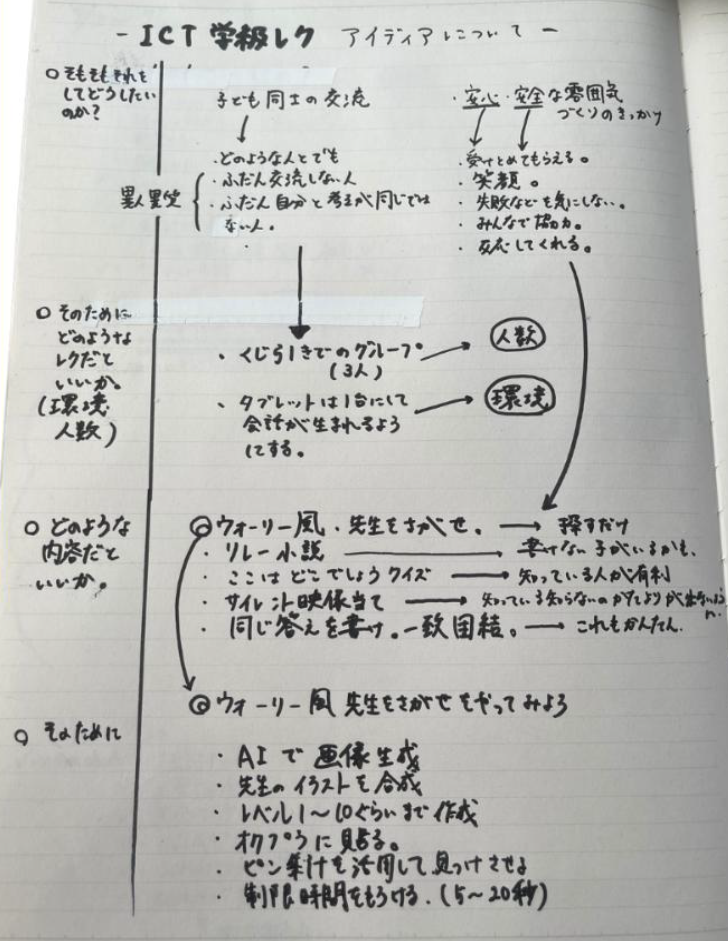 - ICT 学級レク アイディアについて -
○ そもそもそれを
してどうしたい
のか?
子ども同士の交流
↓
・どのような人とでも
・ふだん交流しない人
・ふだん自分と考えが同じでは
ない人。
・
異人異質 {
・安心・安全な雰囲気
づくりのきっかけ
・受けとめてもらえる。
・笑顔。
・失敗などを気にしない。
・みんなで協力。
・反応してくれる。
○ そのために
どのような
レクだと
いいか。
(環境
人数)
・くじ引きでのグループ → 人数
(3人)
・タブレットは1台にして → 環境
会話が生まれるよう
にする。
○ どのような
内容だと
いいか。
◎ ウォーリー風・先生をさがせ。 → 探すだけ
・リレー小説 → 書けない子がいるかも、
・ここはどこでしょうクイズ → 知っている人が有利
・サイレント映像当て → 知っている知らないのかたよりが出ないように。
・同じ答えを書け。一致団結。 → これもかんたん。
◎ ウォーリー風 先生をさがせをやってみよう
○ そのために
・AIで画像生成
・先生のイラストを合成
・レベル1〜10ぐらいまで作成
・オクプラに貼る。
・ピン集計を活用して見つけさせる
・制限時間をもうける。(5〜20秒)